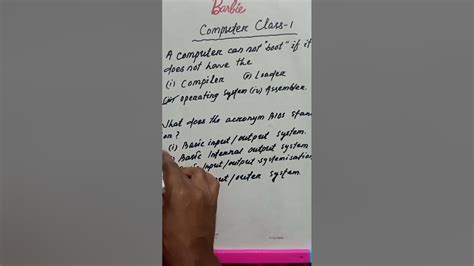 Barbie
Computer Class-1
A computer can not "boot" if it
does not have the
(i) Compiler (ii) Loader
(iii) operating system (iv) Assembler.
What does the acronym BIOS stan
on?
(i) Basic input/output system.
) Basic Internal output system
input/output systemisation
put/outer system.